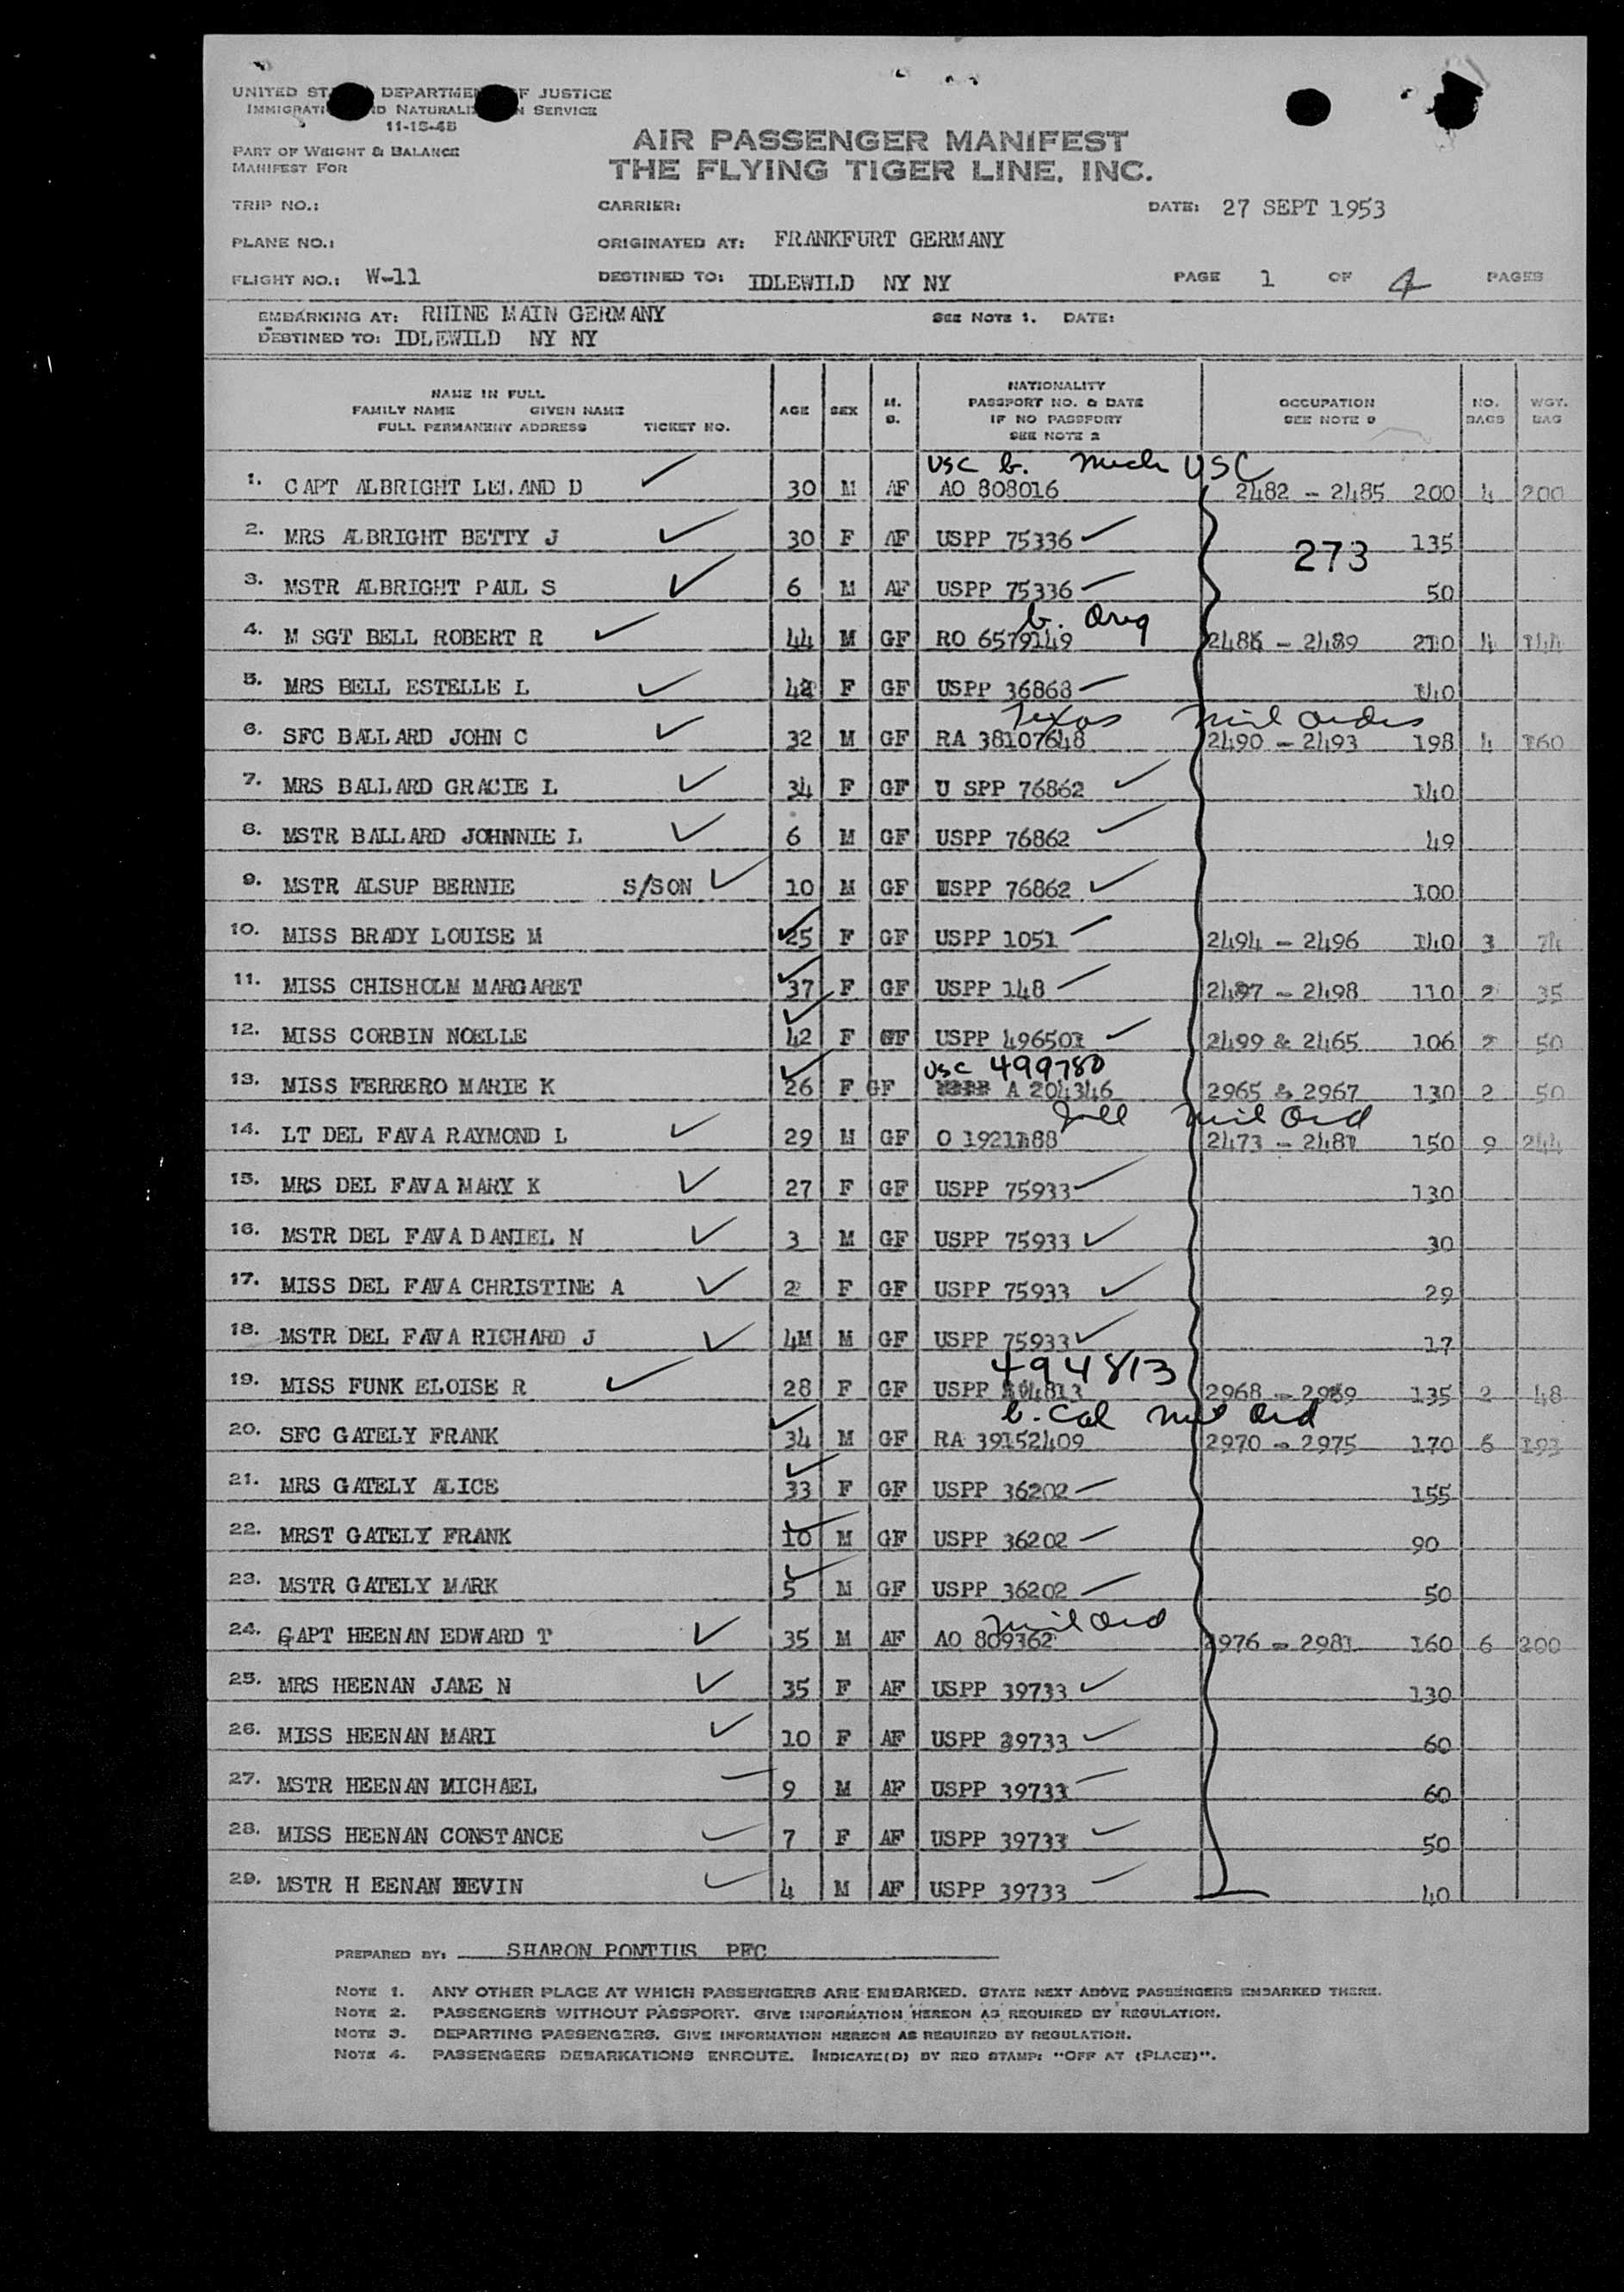 UNITED ST DEPARTME F JUSTICE
IMMIGRATI D NATURALI N SERVICE
11-15-48
PART OF WEIGHT & BALANCE
MANIFEST FOR
AIR PASSENGER MANIFEST
THE FLYING TIGER LINE, INC.
TRIP NO.: CARRIER: DATE: 27 SEPT 1953
PLANE NO.: ORIGINATED AT: FRANKFURT GERMANY
FLIGHT NO.: W-11 DESTINED TO: IDLEWILD NY NY PAGE 1 OF 4 PAGES
EMBARKING AT: RHINE MAIN GERMANY SEE NOTE 1. DATE:
DESTINED TO: IDLEWILD NY NY
NAME IN FULL
FAMILY NAME GIVEN NAME
FULL PERMANENT ADDRESS TICKET NO.
AGE SEX M. S.
NATIONALITY
PASSPORT NO. & DATE
IF NO PASSPORT
SEE NOTE 2
OCCUPATION
SEE NOTE 3
NO. BAGS
WGT. BAG
USC b. Mich USC
1. CAPT ALBRIGHT LELAND D 30 M AF AO 808016 2482 - 2485 200 4 200
2. MRS ALBRIGHT BETTY J 30 F AF USPP 75336 273 135
3. MSTR ALBRIGHT PAUL S 6 M AF USPP 75336 50
b.
4. M SGT BELL ROBERT R 44 M GF RO 6579149 2486 - 2489 210 4 144
5. MRS BELL ESTELLE L F GF USPP 36868 140
Texas Mil Orders
6. SFC BALLARD JOHN C 32 M GF RA 38107648 2490 - 2493 198 4 160
7. MRS BALLARD GRACIE L 34 F GF U SPP 76862 140
8. MSTR BALLARD JOHNNIE L 6 M GF USPP 76862 49
9. MSTR ALSUP BERNIE S/SON 10 M GF USPP 76862 100
10. MISS BRADY LOUISE M 25 F GF USPP 1051 2494 - 2496 140 3 74
11. MISS CHISHOLM MARGARET 37 F GF USPP 148 2497 - 2498 110 2 35
12. MISS CORBIN NOELLE 42 F GF USPP 496501 2499 & 2465 106 2 50
USC 499780
13. MISS FERRERO MARIE K 26 F GF A 204346 2965 & 2967 130 2 50
Mil Ord
14. LT DEL FAVA RAYMOND L 29 M GF O 1921188 2473 - 2481 150 9 244
15. MRS DEL FAVA MARY K 27 F GF USPP 75933 130
16. MSTR DEL FAVA DANIEL N 3 M GF USPP 75933 30
17. MISS DEL FAVA CHRISTINE A 2 F GF USPP 75933 29
18. MSTR DEL FAVA RICHARD J 4M M GF USPP 75933 17
494813
19. MISS FUNK ELOISE R 28 F GF USPP 2968 - 2969 135 2 48
b. Cal Mil Ord
20. SFC GATELY FRANK 34 M GF RA 39152409 2970 - 2975 170 6 193
21. MRS GATELY ALICE 33 F GF USPP 36202 155
22. MRST GATELY FRANK 10 M GF USPP 36202 90
23. MSTR GATELY MARK 5 M GF USPP 36202 50
Mil Ord
24. CAPT HEENAN EDWARD T 35 M AF AO 809362 2976 - 2981 160 6 200
25. MRS HEENAN JANE N 35 F AF USPP 39733 130
26. MISS HEENAN MARI 10 F AF USPP 39733 60
27. MSTR HEENAN MICHAEL 9 M AF USPP 39733 60
28. MISS HEENAN CONSTANCE 7 F AF USPP 39733 50
29. MSTR H EENAN KEVIN 4 M AF USPP 39733 40
PREPARED BY: SHARON PONTIUS PFC
NOTE 1. ANY OTHER PLACE AT WHICH PASSENGERS ARE EMBARKED. STATE NEXT ABOVE PASSENGERS EMBARKED THERE.
NOTE 2. PASSENGERS WITHOUT PASSPORT. GIVE INFORMATION HEREON AS REQUIRED BY REGULATION.
NOTE 3. DEPARTING PASSENGERS. GIVE INFORMATION HEREON AS REQUIRED BY REGULATION.
NOTE 4. PASSENGERS DEBARKATIONS ENROUTE. INDICATE(D) BY RED STAMP: "OFF AT (PLACE)".